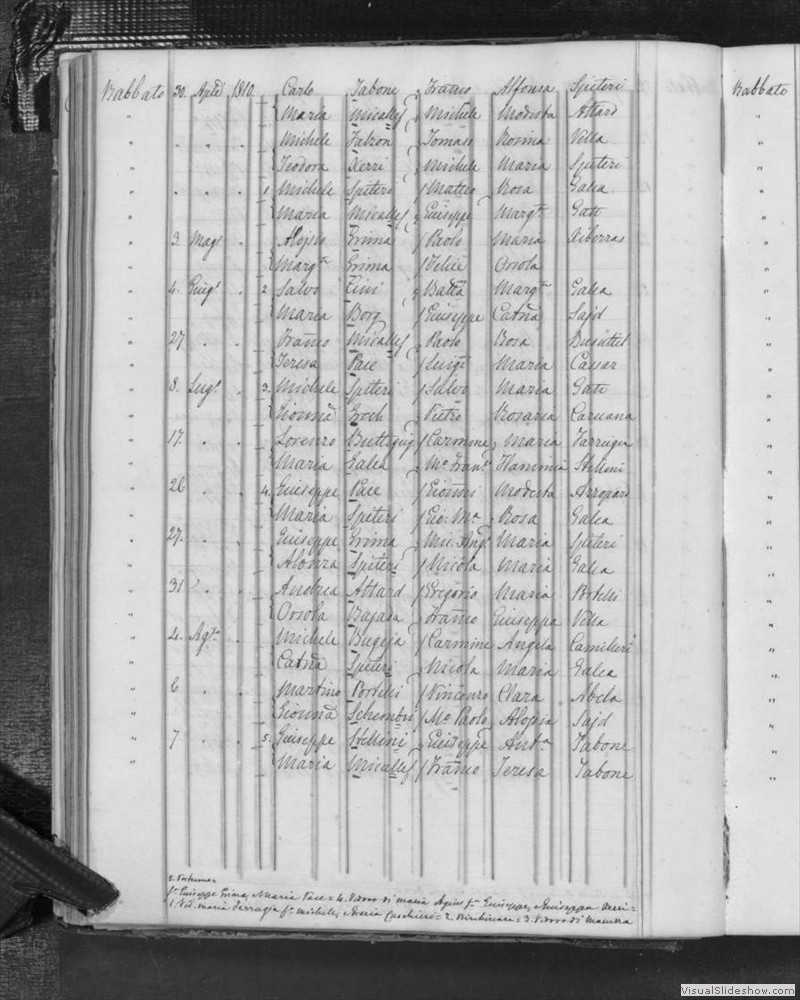 Rabbato 30. Aple 1810. Carlo Tabone Franco Alfonsa Spiteri Rabbato
" Maria Micallef Michele Modesta Attard "
" . . . Michele Falzon Tomaso Rosina Vella "
" Teodora Xerri Michele Maria Spiteri "
" . . . 1 Michele Spiteri Matteo Rosa Galea "
" Maria Micallef Giuseppe Margta Gatt "
" 3. Mago . Alojsio Grima Paolo Maria Xiberras "
" Margta Grima Felice Orsola "
" 4. Giugo . 2 Salvo Cini Batta Margta Galea "
" Maria Borg Giuseppe Catna Sajd "
" 27 . . Franco Micallef Paolo Rosa Busuttil "
" Teresa Pace Luigi Maria Cassar "
" 8. Lugo . 3. Michele Spiteri Salvo Maria Gatt "
" Gionna Grech Pietro Rosaria Caruana "
" 17. . . Lorenzo Buttigieg Carmine Maria Farrugia "
" Maria Galea Mo Frano Flaminia Stellini "
" 26 . . 4. Giuseppe Pace Gionni Modesta "
" Maria Spiteri Gio. Ma Rosa Galea "
" 27. . . Giuseppe Grima Mic. Ango Maria Spiteri "
" Alonza Spiteri Nicola Maria Galea "
" 31 . . Andrea Attard Gregorio Maria Portelli "
" Orsola Bajada Franco Giuseppa Vella "
" 4. Agto . Michele Bugeja Carmine Angela Camilleri "
" Catna Spiteri Nicola Maria Galea "
" 6 . . Martino Portelli Vincenzo Clara Abela "
" Gionna Schembri Mo Paolo Alojsia Sajd "
" 7 . . 5. Giuseppe Stellini Giuseppe Anta Tabone "
" Maria Micallef Franco Teresa Tabone "
fo Giuseppe Grima, e Maria Pace = 4. Vedovo di Maria Agius fa Giuseppe, e Giuseppa Xerri =
1. Ved. Maria Farrugia fa Michele, e Maria = 2. = 3. Vedovo di
VisualSlideshow.com